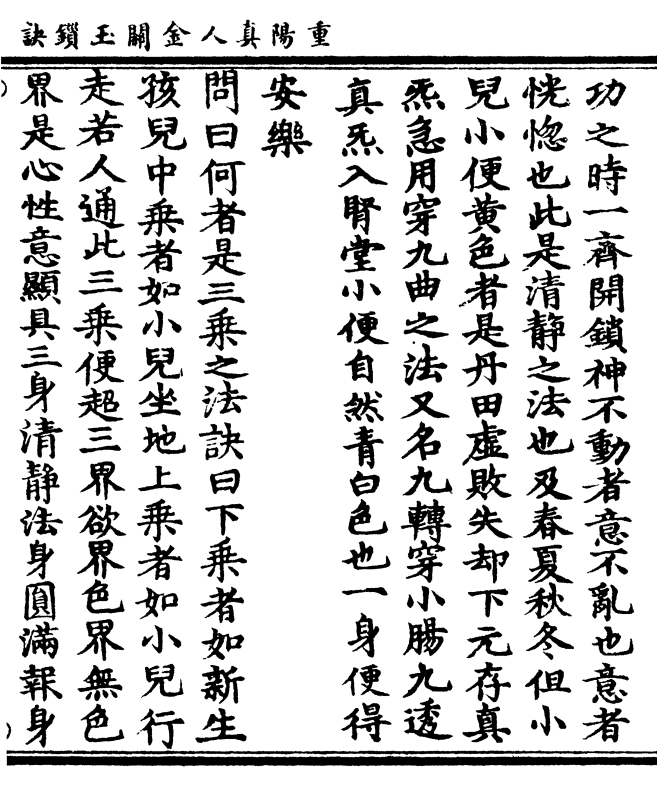 重陽真人金關玉鎖訣
功之時一齊開鎖神不動者意不亂也意者
恍惚也此是清靜之法也及春夏秋冬但小
兒小便黃色者是丹田虛敗失却下元存真
炁急用穿九曲之法又名九轉穿小腸九透
真炁入腎堂小便自然青白色也一身便得
安樂
問曰何者是三乘之法訣曰下乘者如新生
孩兒中乘者如小兒坐地上乘者如小兒行
走若人通此三乘便超三界欲界色界無色
界是心性意顯具三身清靜法身圓滿報身